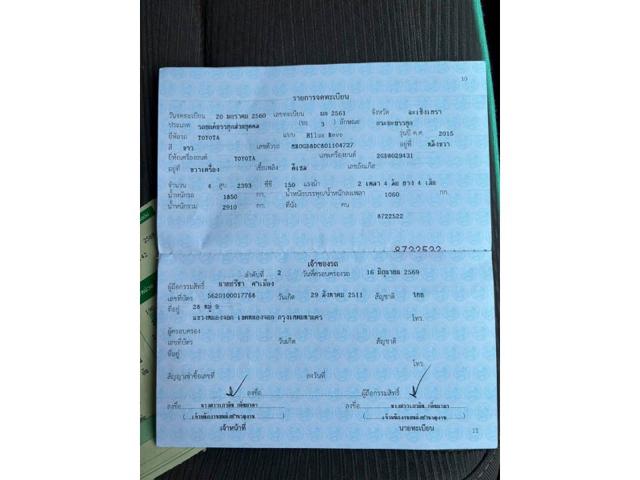 10
รายการจดทะเบียน
วันจดทะเบียน 20 มกราคม 2560 เลขทะเบียน ผผ 2561 จังหวัด ฉะเชิงเทรา
ประเภท รถยนต์บรรทุกส่วนบุคคล (รย. 3 ) ลักษณะ กระบะบรรทุก
ยี่ห้อรถ TOYOTA แบบ Hilux Revo รุ่นปี ค.ศ. 2015
สี ขาว เลขตัวรถ อยู่ที่
ยี่ห้อเครื่องยนต์ TOYOTA เลขเครื่องยนต์ 2GD8029431
อยู่ที่ ขวาเครื่อง เชื้อเพลิง ดีเซล เลขถังแก๊ส
จำนวน 4 สูบ 2393 ซีซี 150 แรงม้า 2 เพลา 4 ล้อ ยาง 4 เส้น
น้ำหนักรถ 1850 กก. น้ำหนักบรรทุก/น้ำหนักลงเพลา 1060 กก.
น้ำหนักรวม 2910 กก. ที่นั่ง คน
8722522
8722522
เจ้าของรถ
ลำดับที่ 2 วันที่ครอบครองรถ 16 มิถุนายน 2569
ผู้ถือกรรมสิทธิ์
เลขที่บัตร 5620100017768 วันเกิด 29 สิงหาคม 2511 สัญชาติ ไทย
ที่อยู่ 28 หมู่ 9
แขวงหนองจอก เขตหนองจอก กรุงเทพมหานคร โทร.
ผู้ครอบครอง
เลขที่บัตร วันเกิด สัญชาติ
ที่อยู่
โทร.
สัญญาเช่าซื้อเลขที่ ลงวันที่
ลงชื่อ ผู้ถือกรรมสิทธิ์
ลงชื่อ ลงชื่อ
เจ้าหน้าที่ นายทะเบียน
11